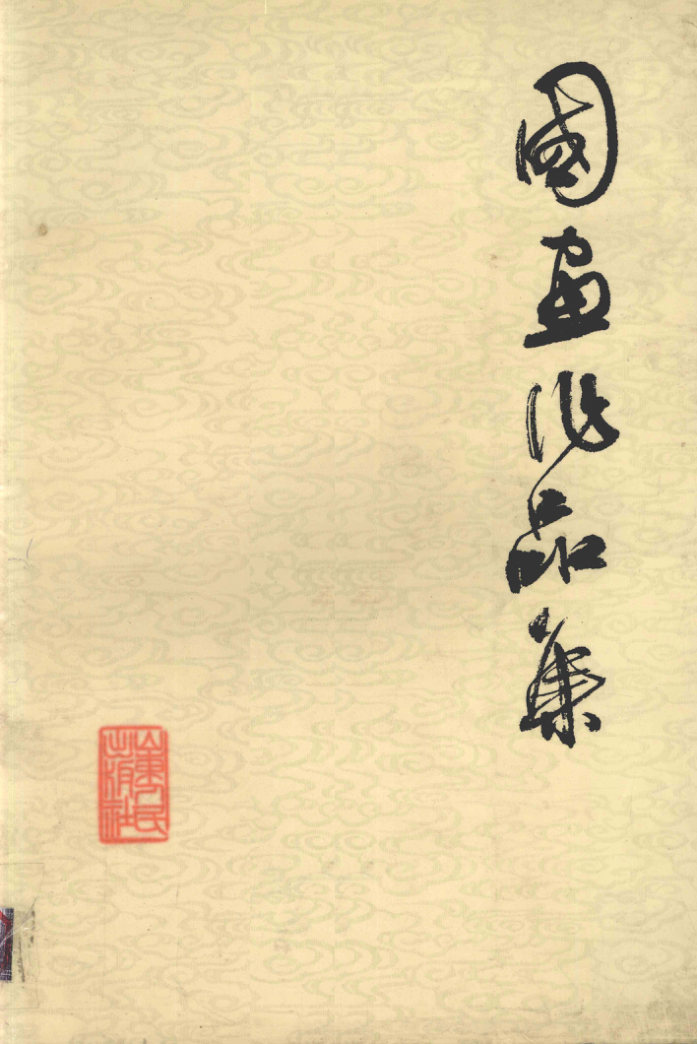 國畫作品集
山東人民
出版社